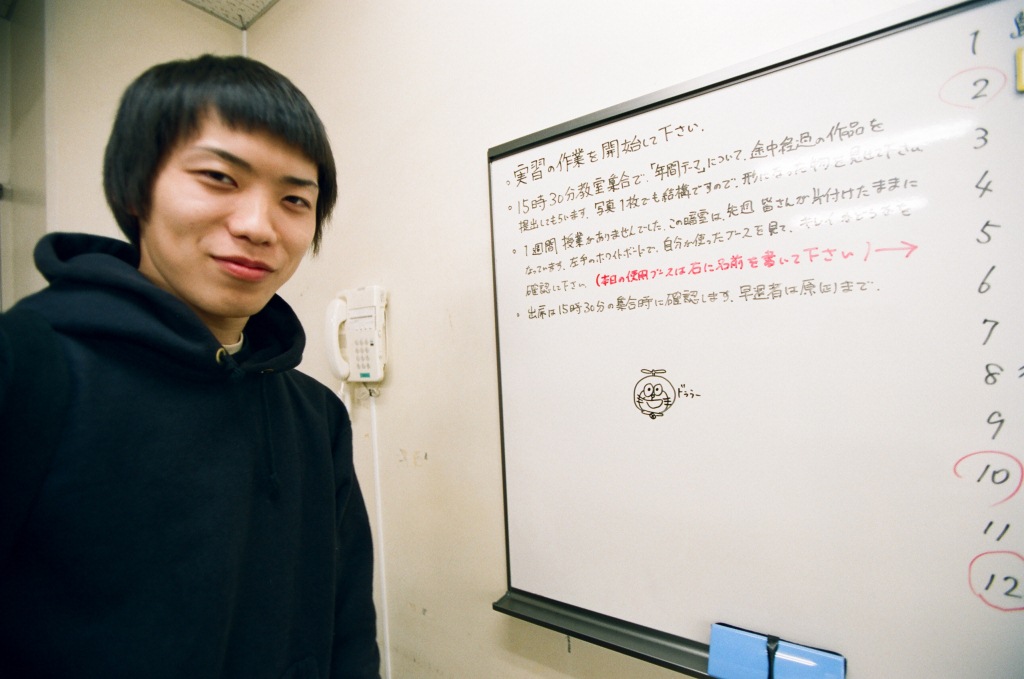 。実習の作業を開始して下さい.
。15時30分教室集合で、「年間テーマ」について、途中経過の作品を
提出してもらいます. 写真1枚でも結構ですので、形になった物を見せて下さい
。1週間 授業がありませんでした. この暗室は、先週 皆さんが片付けたままに
なっています. 左手のホワイトボードで、自分が使ったブースを見て、キレイかどうかを
確認下さい (本日の使用ブースは右に名前を書いて下さい) →
。出席は15時30分の集合時に確認します. 早退者は原田まで.
ドララー
1
2
3
4
5
6
7
8
9
10
11
12